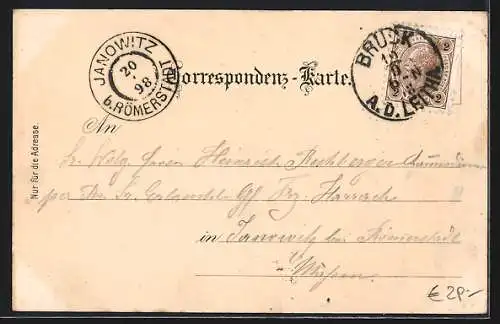 JANOWITZ
20
98
b. RÖMERSTADT
Correspondenz-Karte.
BRUCK
A. D. LEITHA
2 2
An
Nur für die Adresse.
Sr. Wolg. Herrn Heinrich
per Adr. Sr. Gf Frz. Harrach
in Janowitz bei Römerstadt
Mähren
€ 28,-